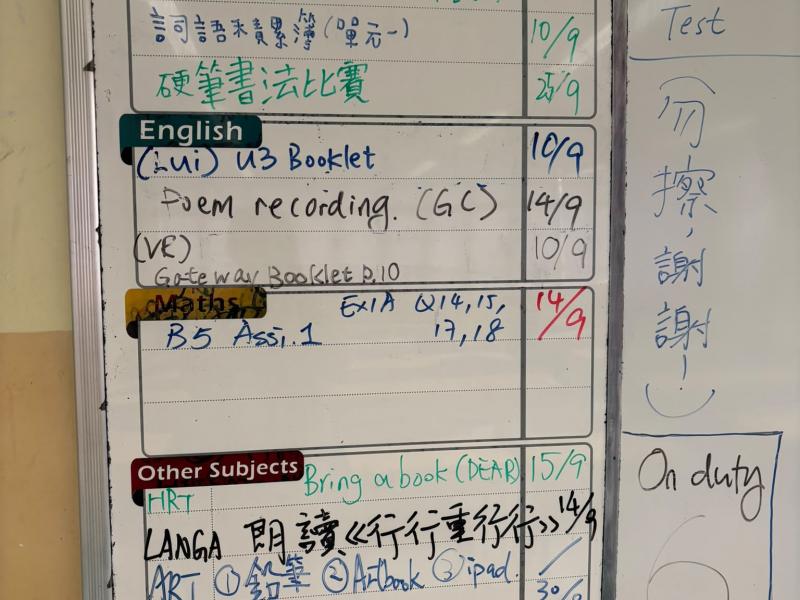 詞語未積累簿(單元一) 10/9
硬筆書法比賽 25/9
English
(LUi) U3 Booklet 10/9
Poem recording. (GC) 14/9
(VE) 10/9
Gateway Booklet p.10
Maths Ex1A Q14,15, 14/9
B5 Assi.1 17,18
Other Subjects Bring a book (DEAR) 15/9
HRT
LANGA 朗讀《行行重行行》 14/9
ART ①鉛筆 ②Artbook ③ipad. 30/9
Test
(勿擦,謝謝!)
On duty
6